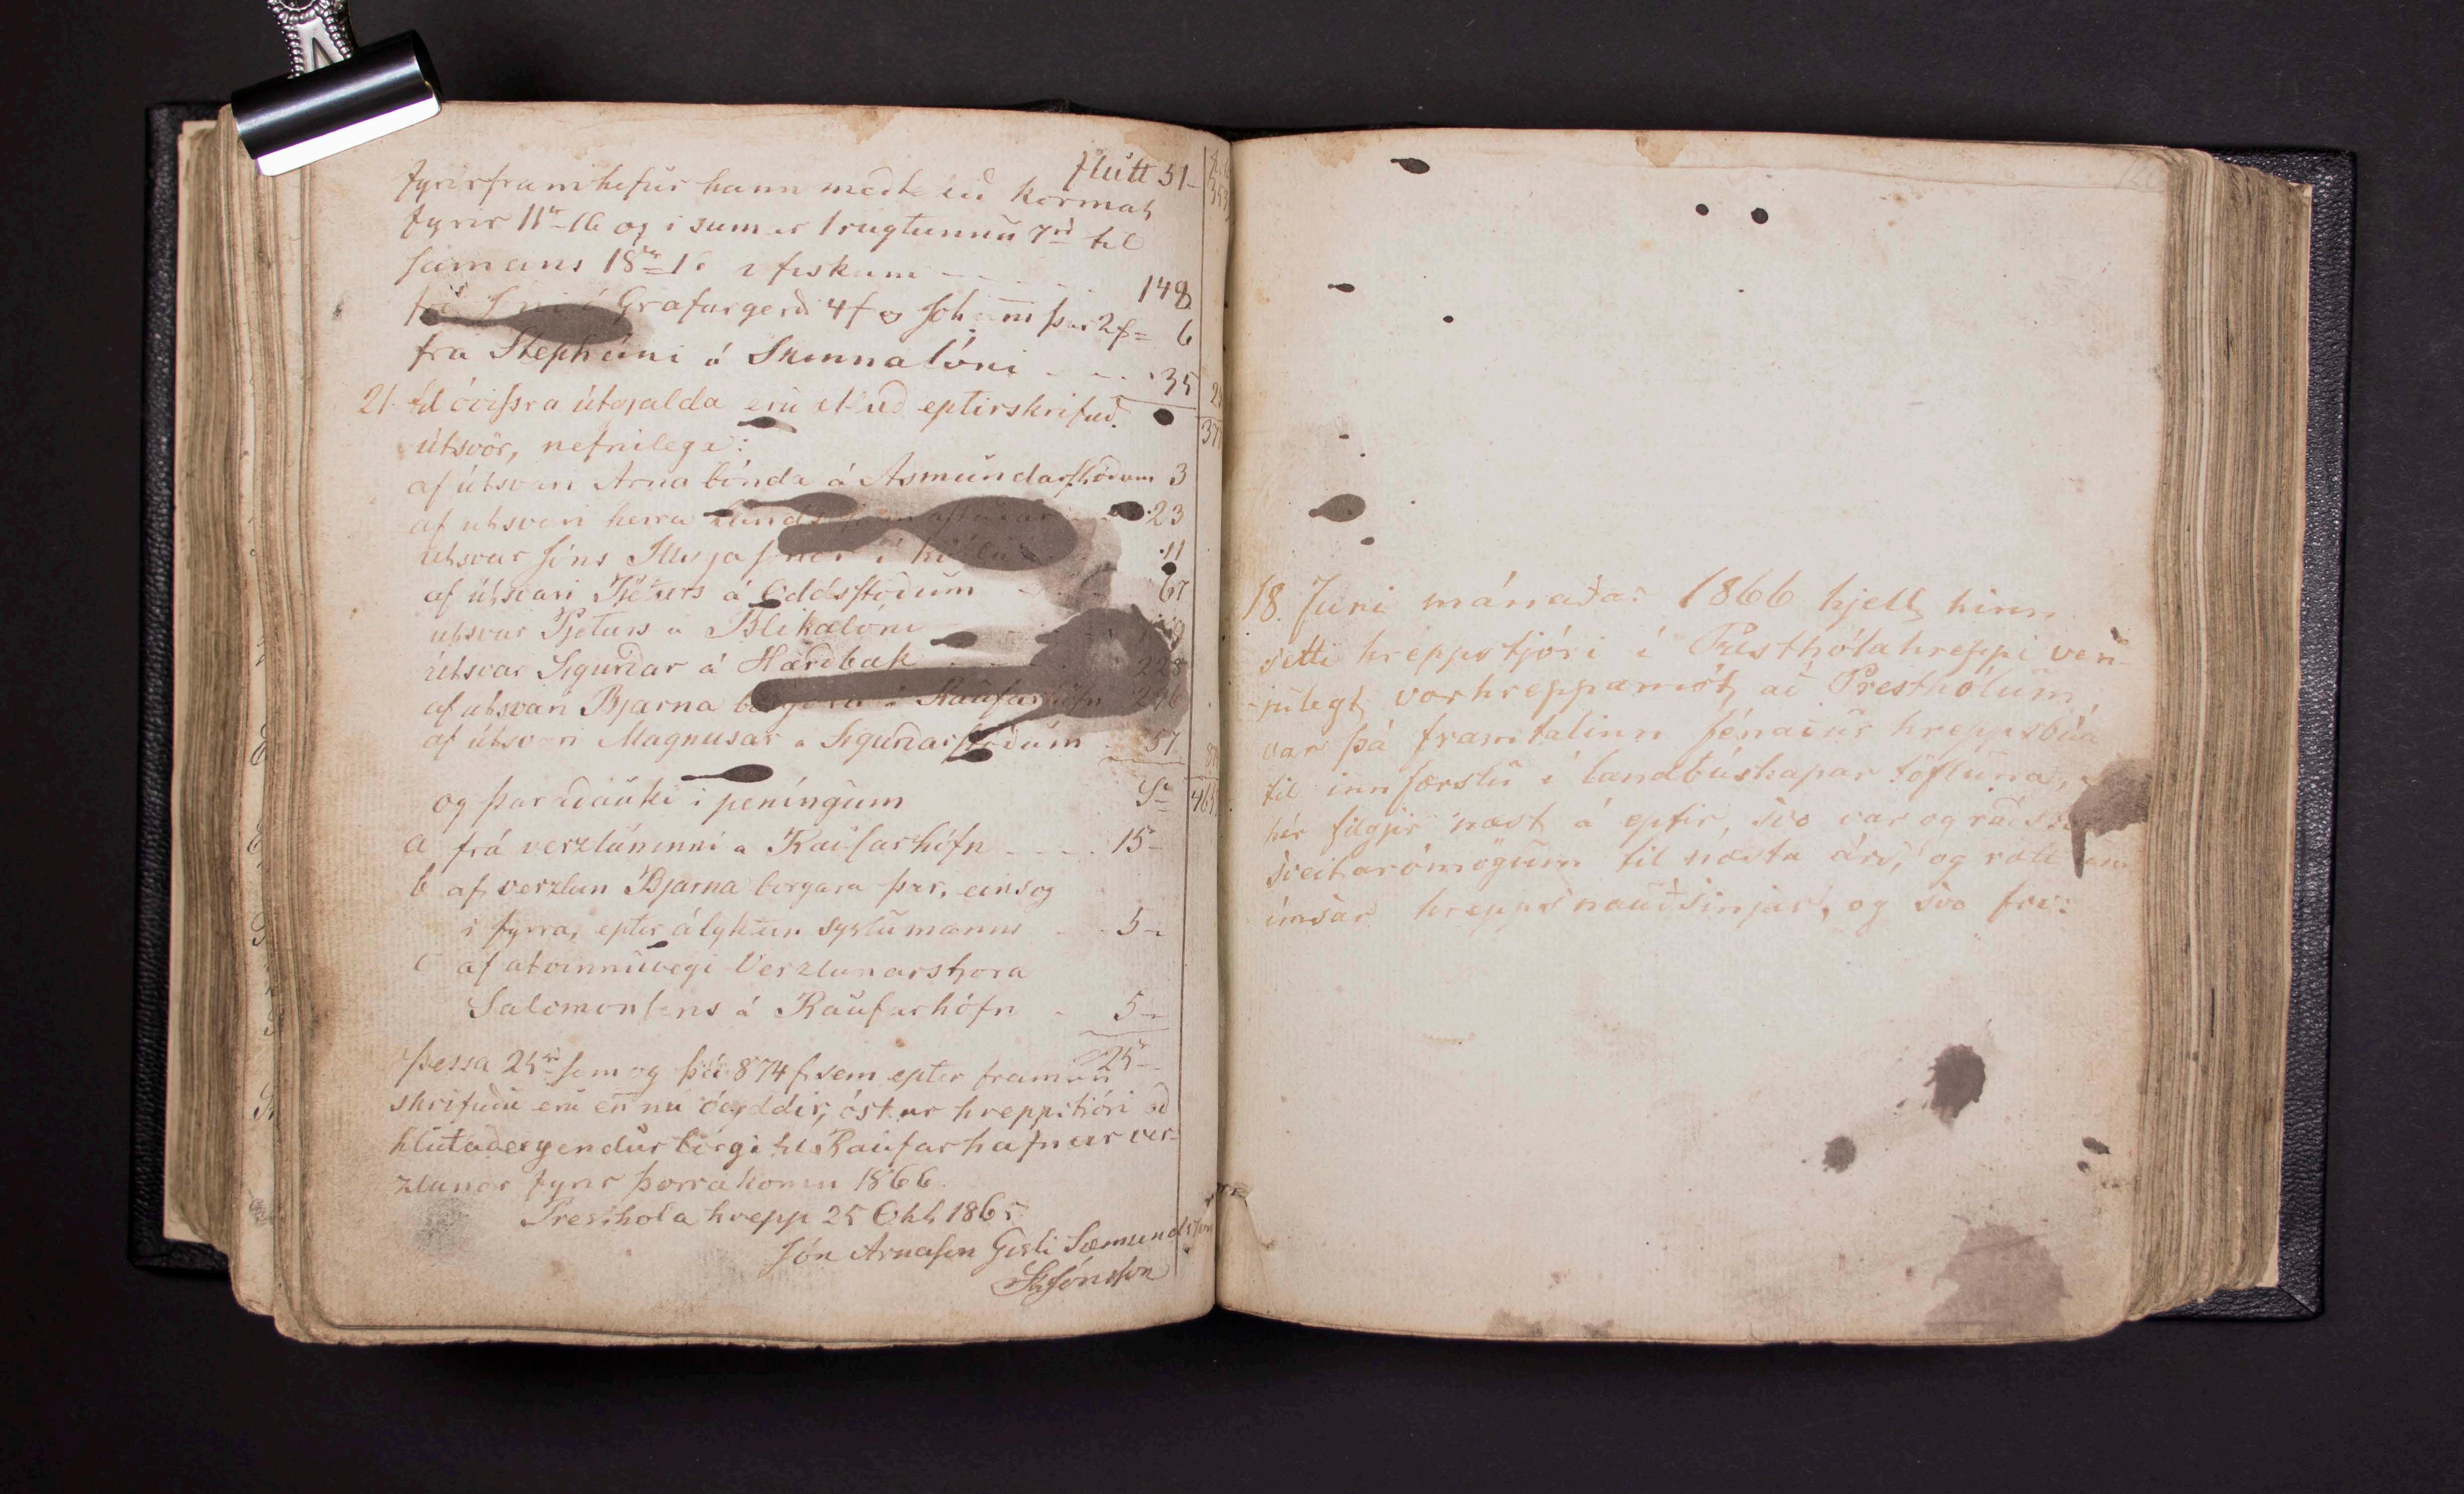 flútt 51-
fyrirfram hefur hann með
fyrir 11 og i sumar 1 rugtunnu 7rd til
samans 18 i fiskum - - 148
frá Grafargerði 4f og þar 2f = 6
fra Stephani á Skinnalóni - - - 35
21. til óvissra útgjalda eru eptirskrifuð
útsvör, nefnilega:
af útsvari Arna bónda á Asmundarstöðum 3
af utsvari herra 23
utsvar Jóns 11
af útsvari Pjeturs á Oddsstöðum - - 67
utsvar Pjeturs a Blikalóni
útsvar Sigurðar á Harðbak 228
af útsvari Bjarna borgara á Raufarhöfn 296
af útsvari Magnusar a Sigurðarstöðum - 57
og þar aðauki i peníngum
a frá verzluninni a Raufarhöfn - - - 15-
b af verzlun Bjarna borgara þar, eins og
i fyrra, eptir ályktun syslumanns - - 5-
c af atvinnuvegi Verzlunarstjora
Salomonsens á Raufarhöfn - 5-
25-
Þessa 25rd sem og þá 874 f sem eptir framan
skrifuðu eru en nu óeyddir, óskar hreppstjóri að
hlutaðeigendur borgi til Raufarhafnar ver-
zlunar fyrir þorrakomu 1866.
Presthola hrepp 25 Okt 1865
Jón Arnason Gisli Sæmundsson
StJónsson
18. Juni mánaðar 1866 hjelt hinn
setti hreppstjóri í Presthólahreppi ven-
julegt vorhreppamót að Presthólum,
var þá framtalinn fénaður hreppsbúa
til innfærslu í landbúskapar töfluna,
hér filgjir næst á eptir, svo var og ráðst
sveitarómögum til næsta árs, og rætt um
ímsar hreppsnauðsinjar, og svo frv: